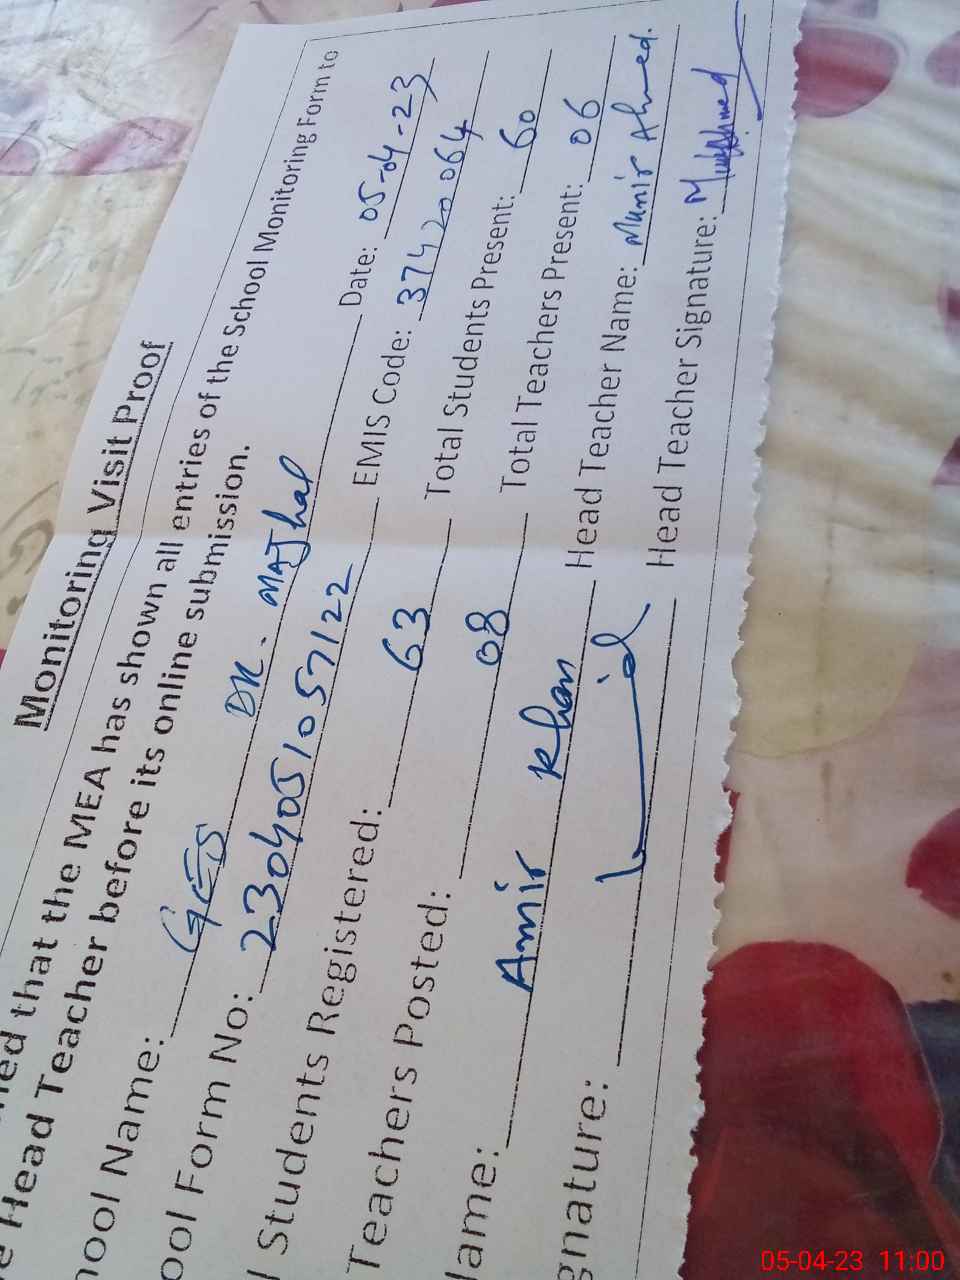 Monitoring Visit Proof
ned that the MEA has shown all entries of the School Monitoring Form to
e Head Teacher before its online submission.
hool Name: GES DK. MAJhal Date: 05-04-23
ool Form No: 2304051057122 EMIS Code: 37420064
l Students Registered: 63 Total Students Present: 60
Teachers Posted: 08 Total Teachers Present: 06
lame: Amir Khan Head Teacher Name: Munir Ahmed.
gnature: Head Teacher Signature:
05-04-23 11:00